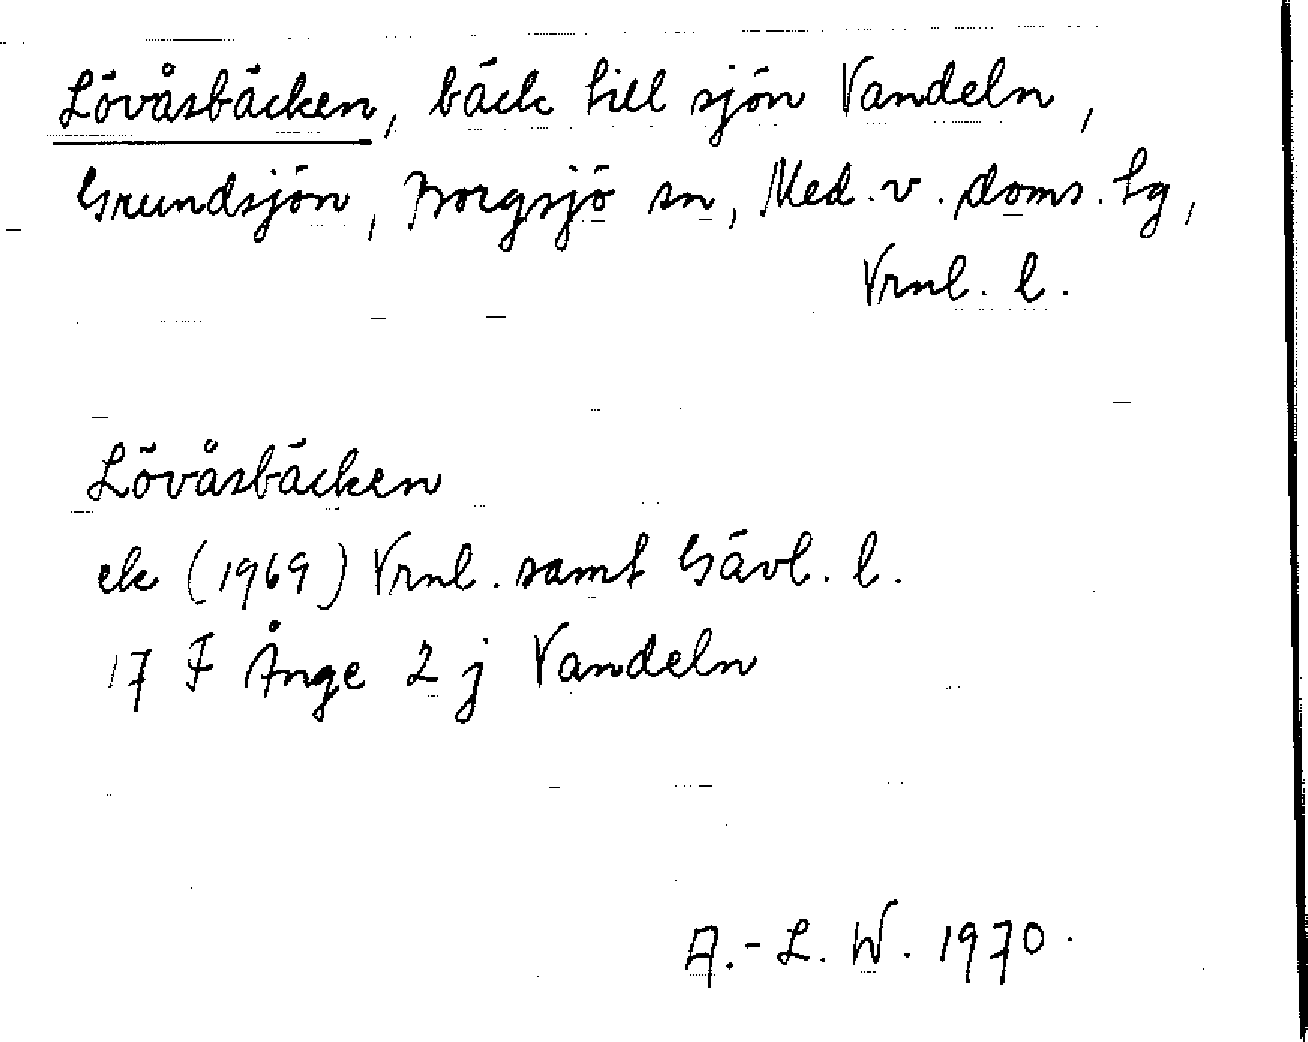 Lövåsbäcken, bäck till sjön Vandeln,
Grundsjön, Borgsjö sn, Med. v. doms. tg,
Vrnl. l.
Lövåsbäcken
ek (1969) Vrnl. samt Gävl. l.
17 F Ånge 2 j Vandeln
A.-L. W. 1970.